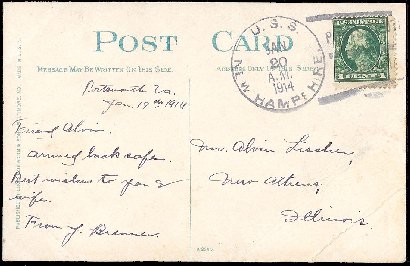 POST CARD
MESSAGE MAY BE WRITTEN ON THIS SIDE.
ADDRESS ONLY ON THIS SIDE.
U.S.S. NEW HAMPSHIRE
JAN
20
A.M.
1914
Jan. 19th 1914
Friend Alvin.
arrived back safe.
Best wishes to you &
wife.
From J.
Mr. Alvin
New Athens,
Illinois.